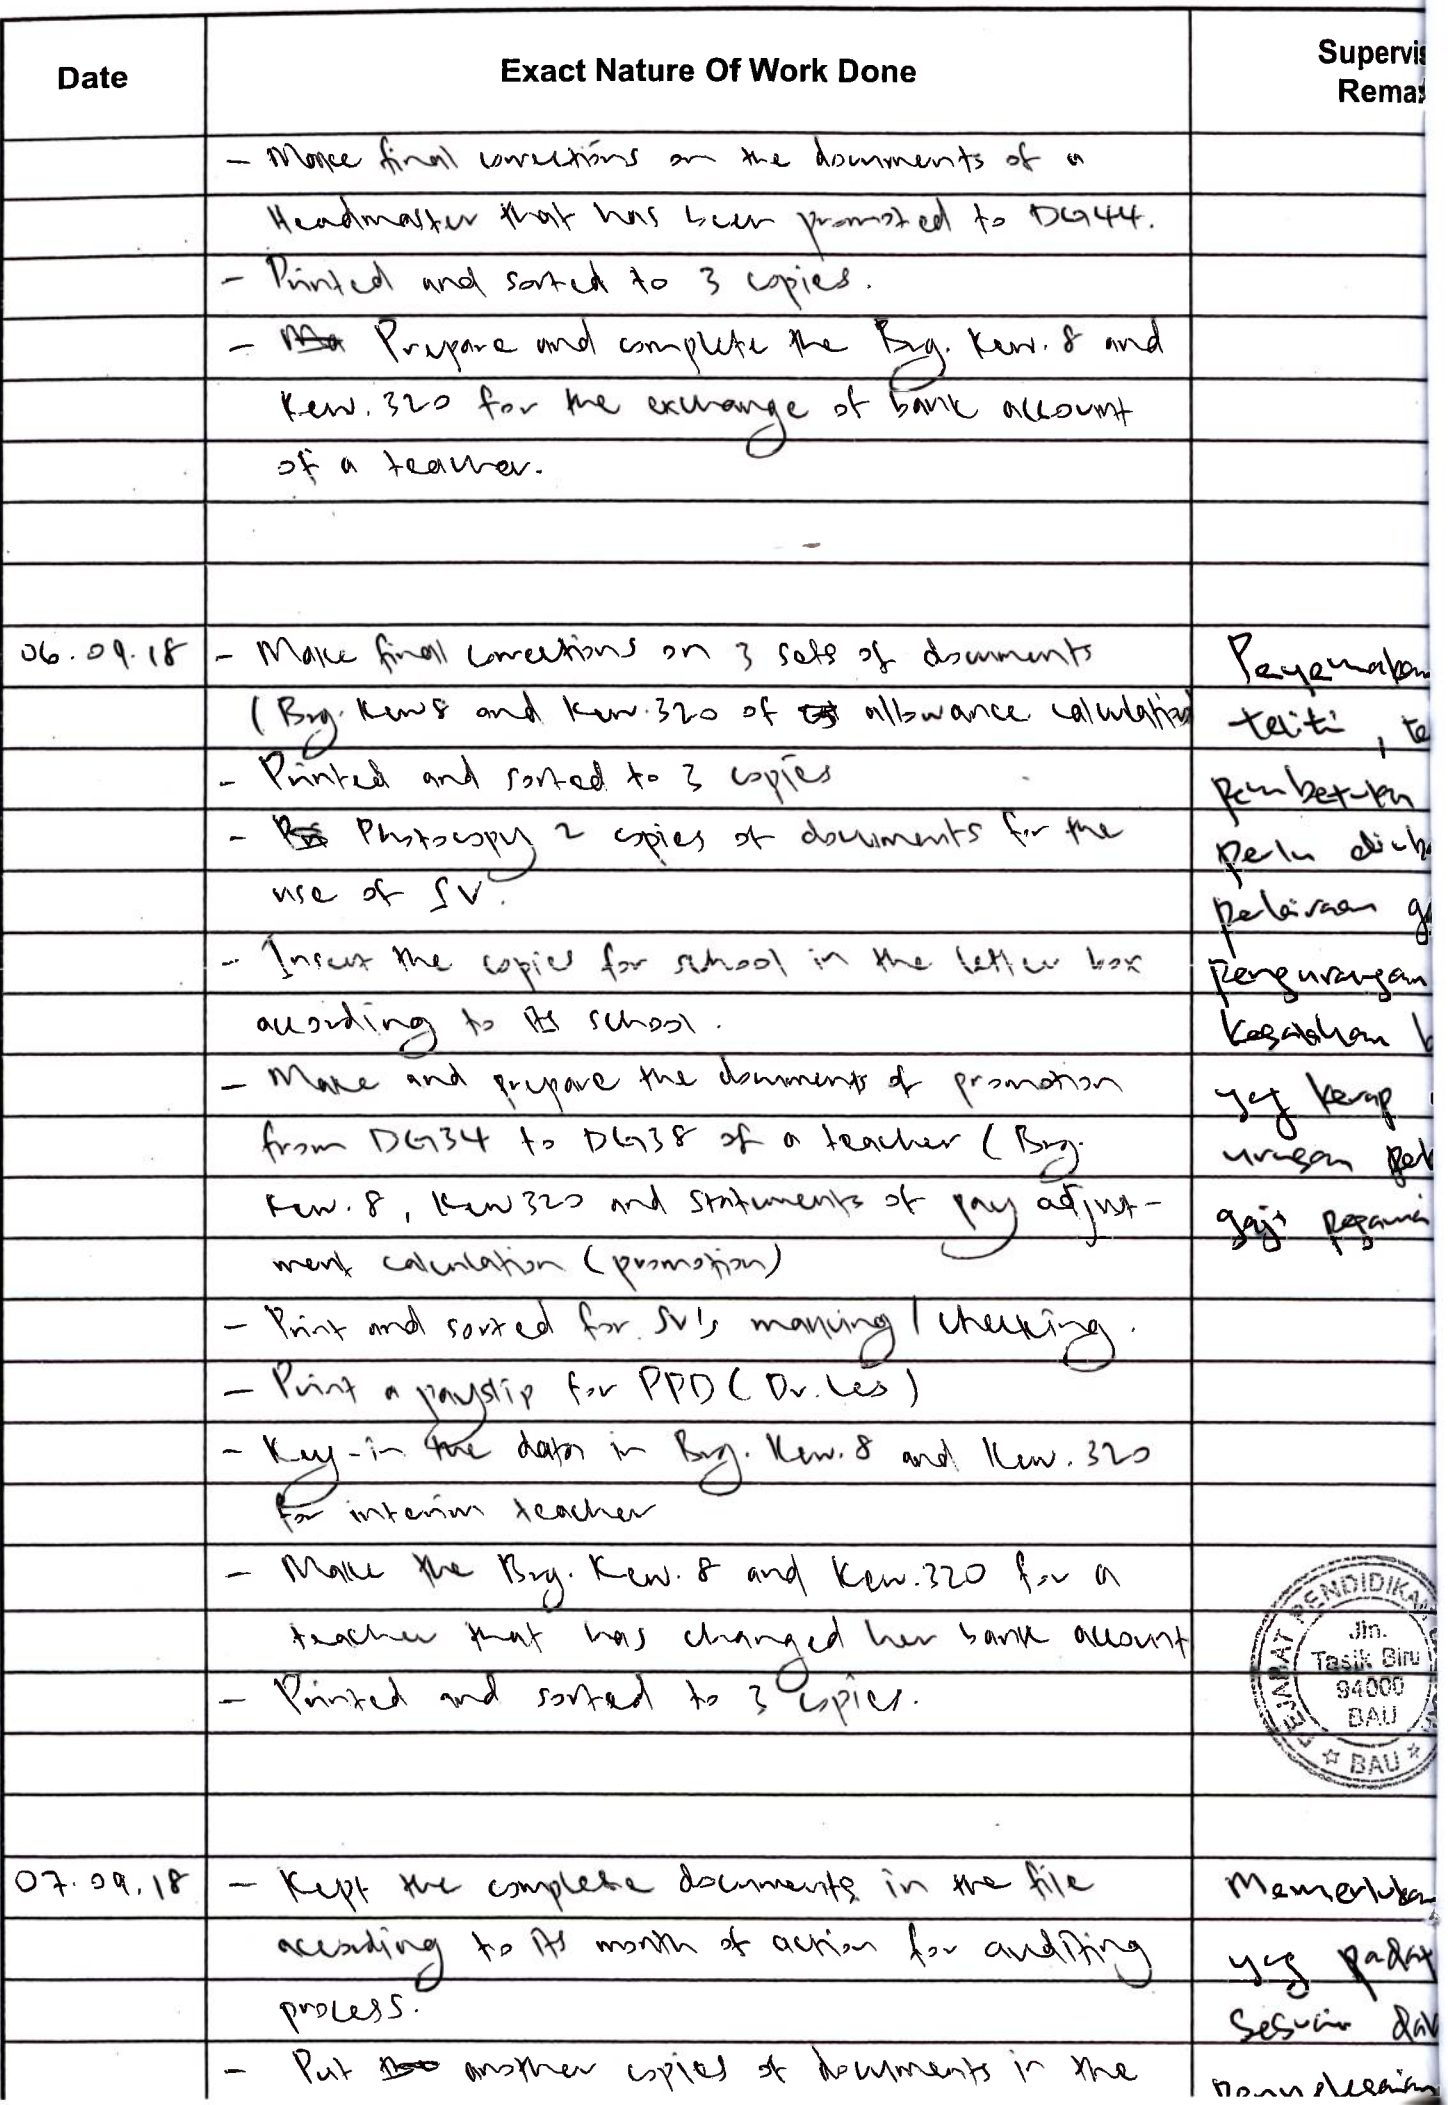 Date
Exact Nature Of Work Done
Supervis
Remar
- Make final corrections on the documents of a
Headmaster that has been promoted to DG44.
- Printed and sorted to 3 copies.
- Prepare and complete the Brg. Kew. 8 and
Kew. 320 for the exchange of bank account
of a teacher.
06.09.18
- Make final corrections on 3 sets of documents
(Brg. Kew 8 and Kew. 320 of allowance calculation
- Printed and sorted to 3 copies
- Photocopy 2 copies of documents for the
use of SV.
- Insert the copies for school in the letter box
according to its school.
- Make and prepare the documents of promotion
from DG34 to DG38 of a teacher (Brg.
Kew. 8, Kew 320 and statements of pay adjust-
ment calculation (promotion)
- Print and sorted for SV's marking / checking.
- Print a payslip for PPD (Dr. Les)
- Key-in the data in Brg. Kew. 8 and Kew. 320
for interim teacher
- Make the Brg. Kew. 8 and Kew. 320 for a
teacher that has changed her bank account
- Printed and sorted to 3 copies.
teliti, te
pembetulan
perlu
pelarasan g
pengurangan
kesalahan b
yg kerap
urusan pel
gaji pegawai
PEJABAT PENDIDIKAN
Jln.
Tasik Biru
94000
BAU
☆ BAU ☆
07.09.18
- Kept the complete documents in the file
according to its month of action for auditing
process.
- Put another copies of documents in the
Memerlukan
yg padat
sesuai dal